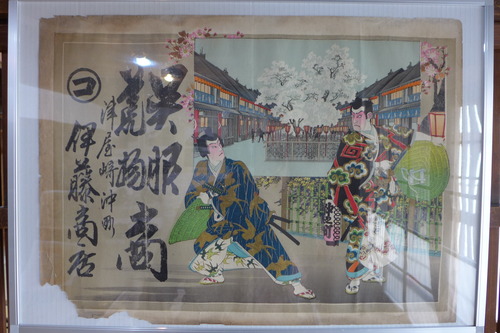 呉服
太物商
津屋崎沖町
伊藤商店